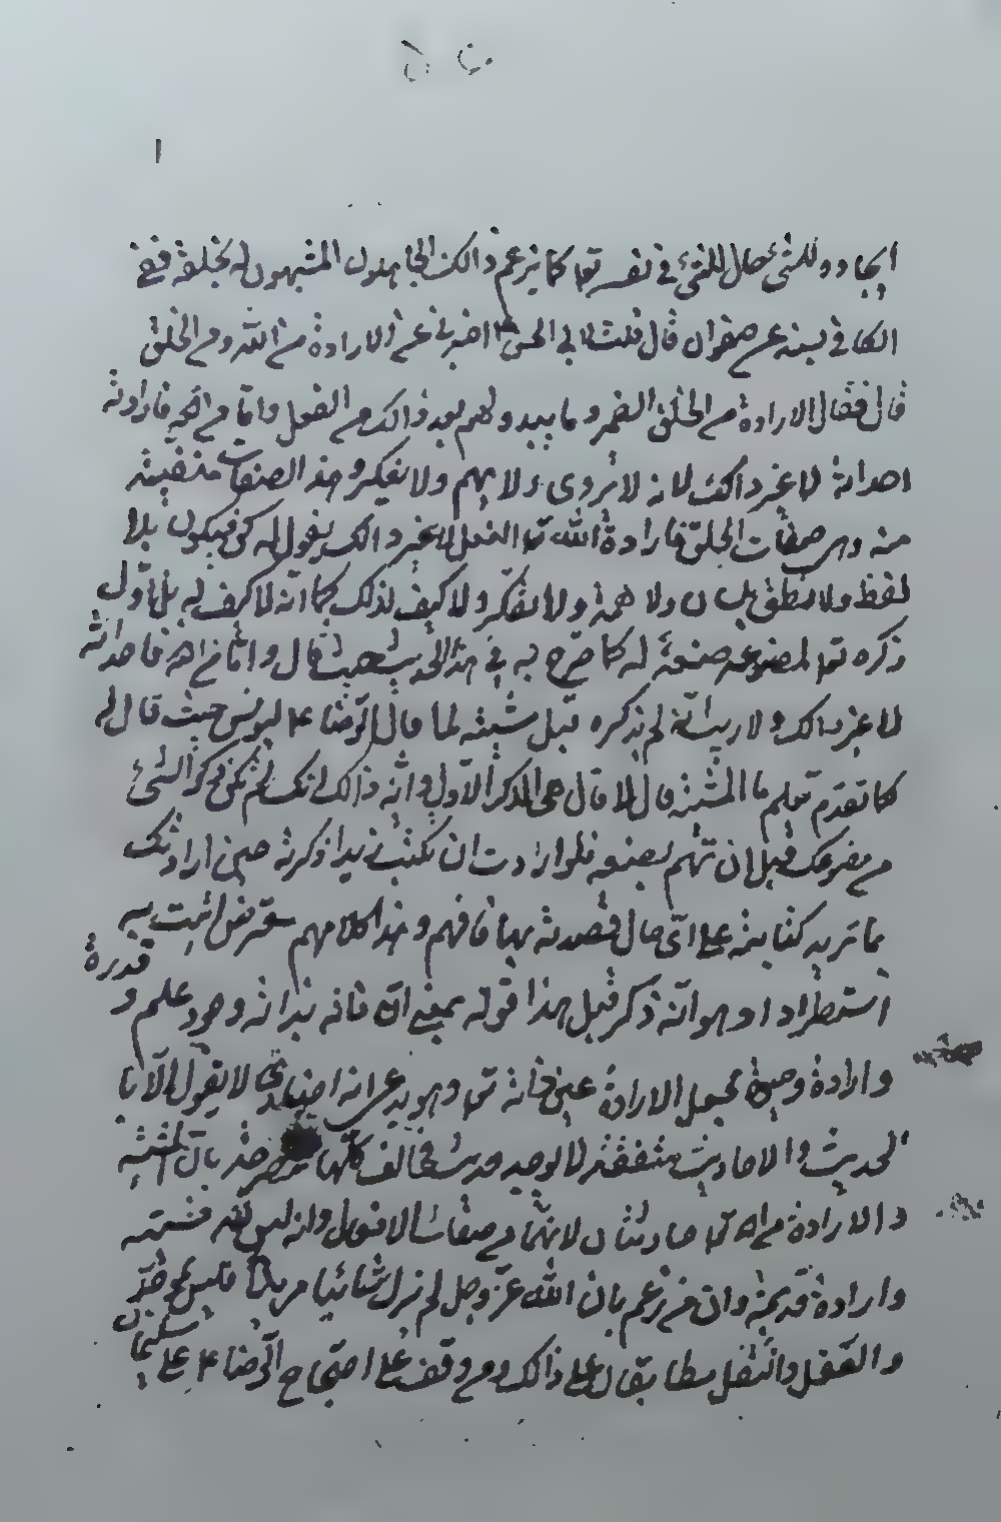 ايجاده للشئ حال للشئ في نفسه تعا كما يزعم ذالك الجاهلون المشبهون له بخلقه ففي
الكافي بسنده عن صفوان قال قلت لابي الحسن ع اخبرني عن الارادة من الله ومن الخلق
قال فقال الارادة من الخلق الضمير وما يبدو لهم بعد ذالك من الفعل واما من الله فارادته
احداثه لا غير ذالك لانه لا يروى ولا يهم ولا يتفكر وهذه الصفات منفية
عنه وهي صفات الخلق فارادة الله تعا الفعل لا غير ذالك يقول له كن فيكون بلا
لفظ ولا نطق بلسان ولا همة ولا تفكر ولا كيف لذلك كما انه لا كيف له بل اول
ذكره تعا لمصنوعه صنعه له كما صرح به في هذا الحديث حيث قال واما من الله فاحداثه
لا غير ذالك ولا ريب انه لم يذكره قبل مشيته لما قال الرضا ع ليونس حيث قال له
كما تقدم تعلم ما المشية قال لا قال هي الذكر الاول وانه ذالك لانك لم تكن ذكر الشئ
من مفروعك قبل ان تهم بصنعه فلو اردت ان تكتب زيدا ذكرته حين ارادتك
بما تريد كتابته على اى حال قصدته بها فافهم وهذا كلام معترض اتيت به
استطرادا وهو انه ذكر قبل هذا قوله بمعنى ان ذاته بذاته وجود علم و قدرة
وارادة وحيوة فجعل الارادة عين ذاته تعا وهو يدعى انه اخباري لا يقول الا با
لحديث والاحاديث متفقة لا يوجد حديث مخالف كلها بان المشية
والارادة من الله تعا حادثتان لانهما من صفات الافعال وانه ليس لله مشية
وارادة قديمة وان من زعم بان الله عز وجل لم يزل شائيا مريدا فليس بموحد
والعقل والنقل متطابقان على ذالك ومن وقف على احتجاج الرضا ع على سليمان